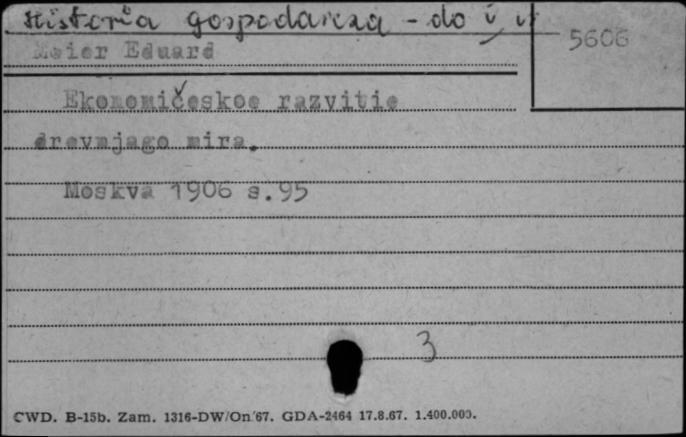 Historia gospodarcza - do V w
5606
Meier Eduard
Ekonomičeskoe razvitie
drevnjago mira.
Moskva 1906 s.95
3
CWD. B-15b. Zam. 1316-DW/On/67. GDA-2464 17.8.67. 1.400.000.